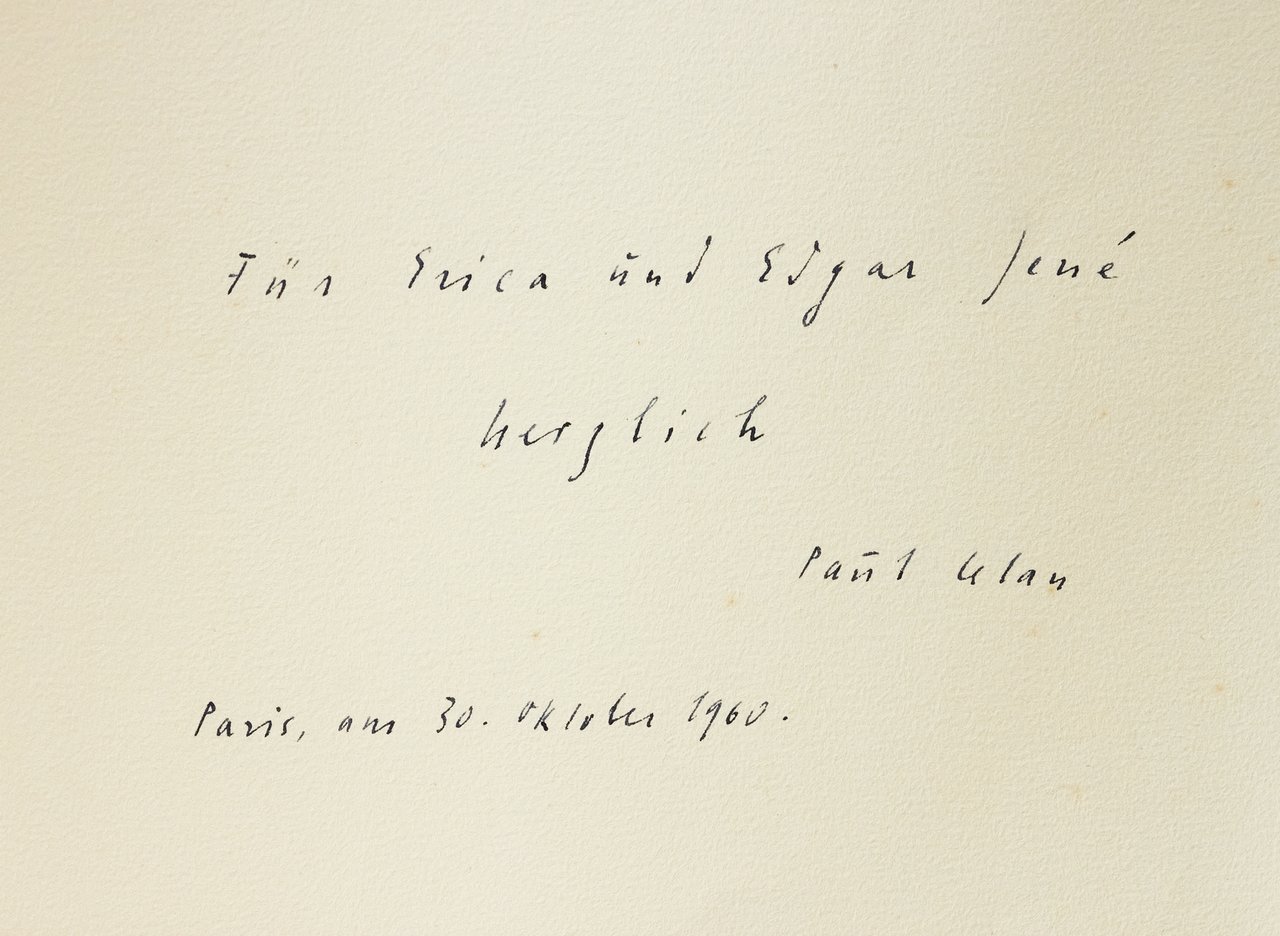 Für Erica und Edgar Jené
herzlich
Paul Celan
Paris, am 30. Oktober 1960.